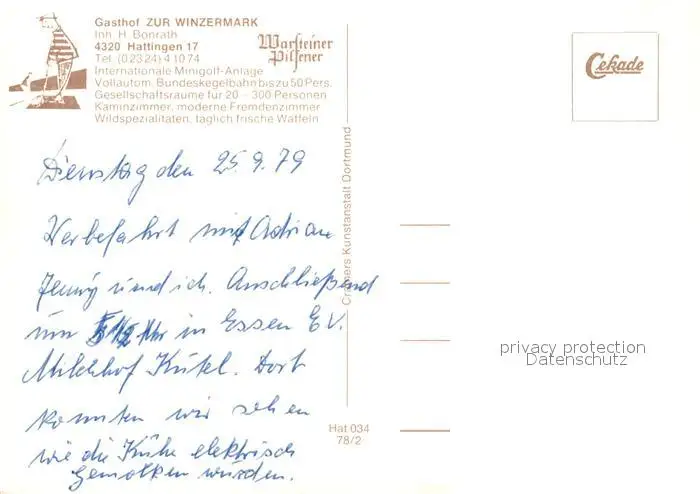 Gasthof ZUR WINZERMARK
Inh. H. Bonrath
4320 Hattingen 17
Tel. (02324) 41074
Internationale Minigolf-Anlage
Vollautom. Bundeskegelbahn bis zu 50 Pers.
Gesellschaftsräume für 20 - 300 Personen
Kaminzimmer, moderne Fremdenzimmer
Wildspezialitäten, täglich frische Waffeln
Warsteiner
Pilsener
Cekade
Dienstag den 25.9.79
Werbefahrt mit Adrian
Jenny und ich. Anschließend
um Uhr in Essen E.V.
Milchhof Kütel. Dort
konnten wir sehen
wie die Kühe elektrisch
gemolken wurden.
Cramers Kunstanstalt Dortmund
Hat 034
78/2
privacy protection
Datenschutz